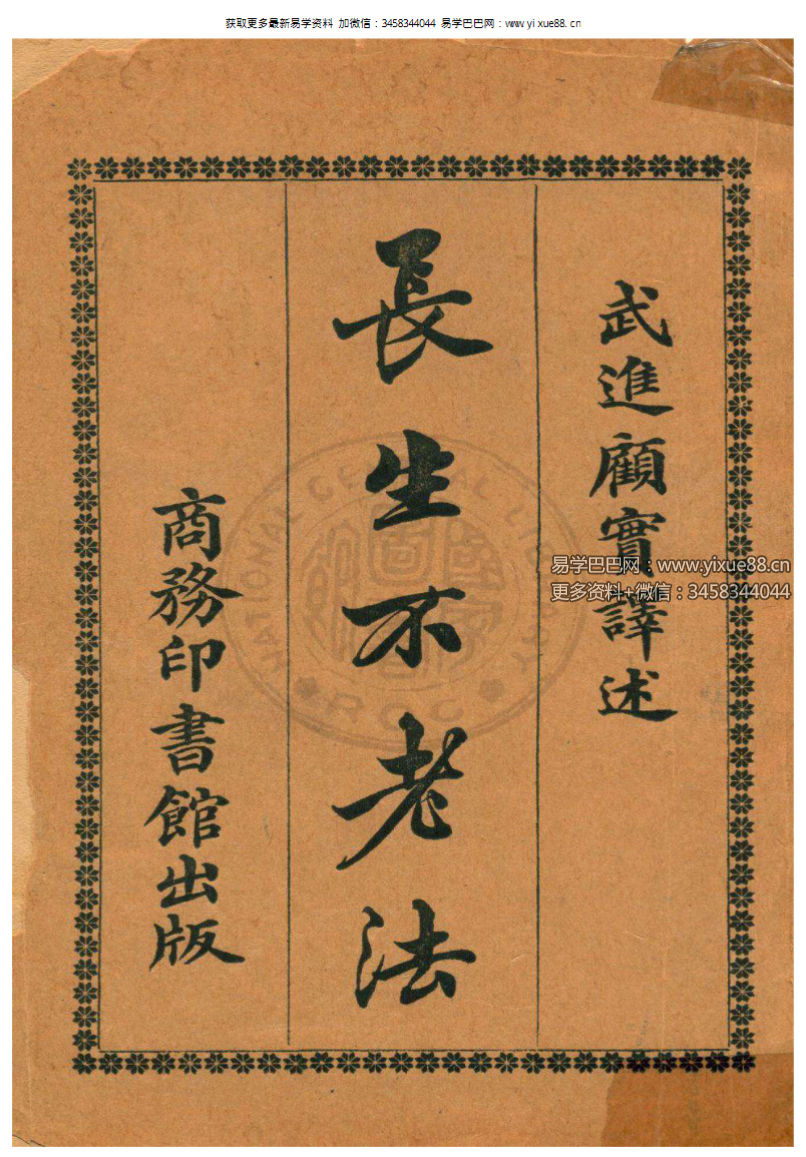 获取更多最新易学资料 加微信：3458344044 易学巴巴网：www.yixue88.cn
武進顧實譯述
長生不老法
商務印書館出版
易学巴巴网：www.yixue88.cn
更多资料+微信：3458344044
NATIONAL CENTRAL LIBRARY
ROC